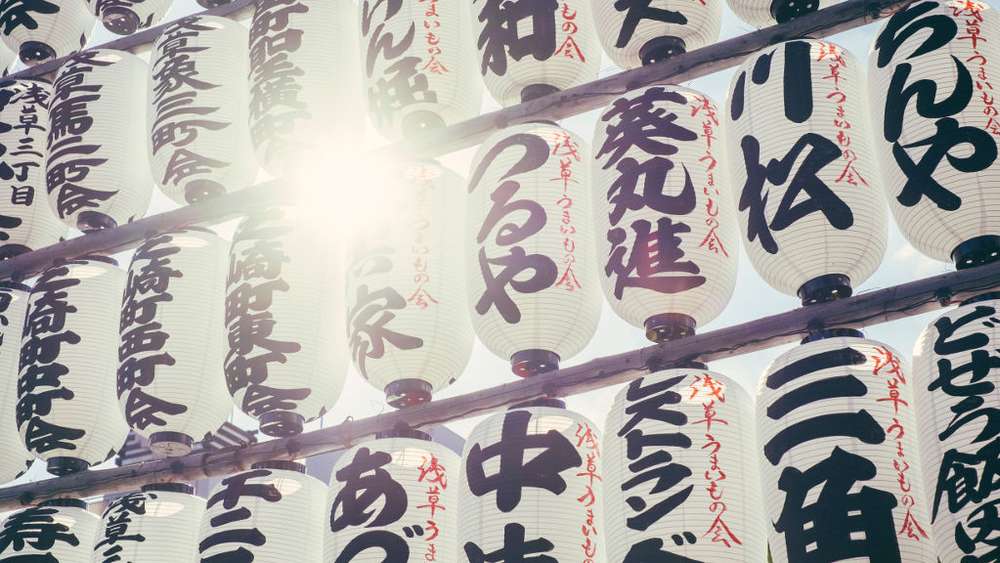 浅草三丁目
馬二町会
象三町会
うまいもの会
和
の会
つるや
浅草うまいもの会
葵丸進
浅草うまいもの会
川松
浅草うまいもの会
ちんや
浅草うまいもの会
芝崎町中町会
芝崎町西町会
芝崎町東町会
家
うまいもの会
寿
浅草三
十二
あづ
浅草うま
中
浅草うまいもの会
レストラン
浅草うまいもの会
三角
浅草うまいもの会
どぜう飯田